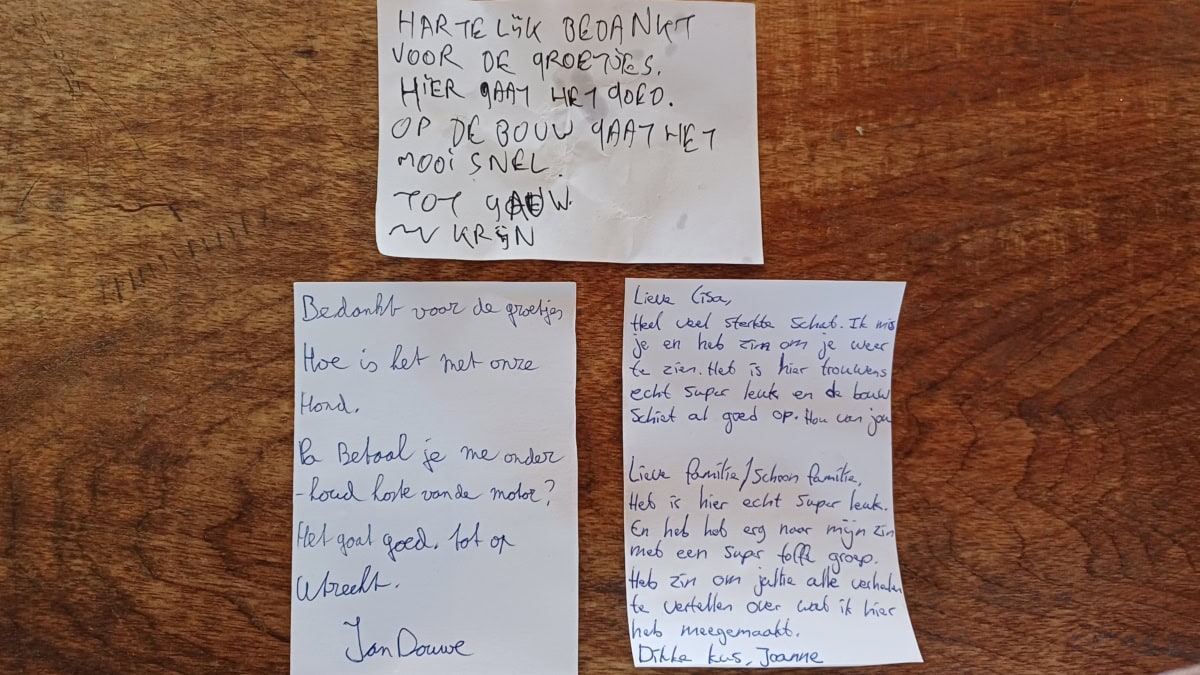 HARTELIJK BEDANKT
VOOR DE GROETJES.
HIER GAAT HET GOED.
OP DE BOUW GAAT HET
MOOI SNEL.
TOT GAUW.
KRIJN
Bedankt voor de groetjes
Hoe is het met onze
Hond.
Pa Betaal je me onder
-houd koste van de motor?
Het gaat goed. tot op
Utrecht.
Jan Douwe
Lieve Lisa,
Heel veel sterkte schat. Ik mis
je en heb zin om je weer
te zien. Het is hier trouwens
echt super leuk en de bouw
schiet al goed op. Hou van jou
Lieve familie/schoon familie,
Het is hier echt super leuk.
En heb het erg naar mijn zin
met een super toffe groep.
Heb zin om jullie alle verhalen
te vertellen over wat ik hier
heb meegemaakt.
Dikke kus, Joanne